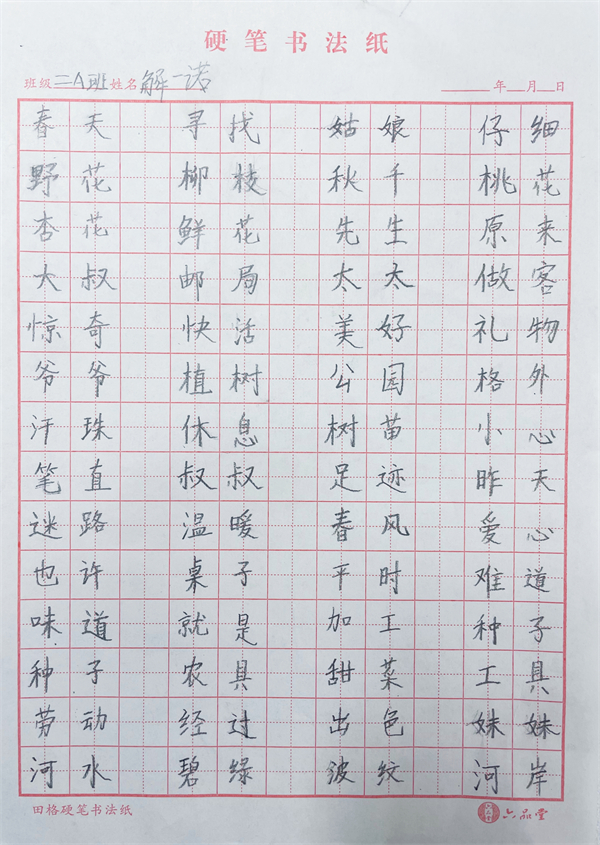 硬笔书法纸
班级 二A班 姓名 解一诺 年 月 日
春天 寻找 姑娘 仔细
野花 柳枝 秋千 桃花
杏花 鲜花 先生 原来
大叔 邮局 太太 做客
惊奇 快活 美好 礼物
爷爷 植树 公园 格外
汗珠 休息 树苗 小心
笔直 叔叔 足迹 昨天
迷路 温暖 春风 爱心
也许 桌子 平时 难道
味道 就是 加工 种子
种子 农具 甜菜 工具
劳动 经过 出色 妹妹
河水 碧绿 波纹 河岸
田格硬笔书法纸 六品堂